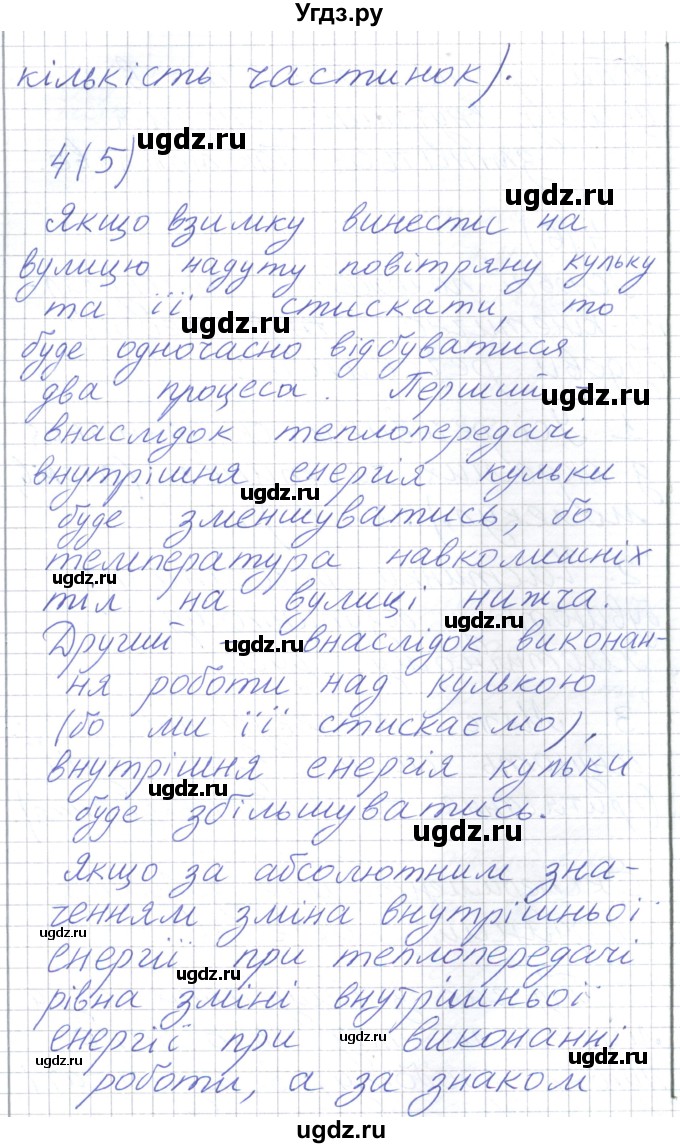 Угдз.ру
кількість частинок).
4(5)
ugdz.ru
Якщо взимку винести на
ugdz.ru
вулицю надуту повітряну кульку
та її стискати, то
ugdz.ru
буде одночасно відбуватися
два процеса. Перший -
ugdz.ru
внаслідок теплопередачі
внутрішня енергія кульки
ugdz.ru
буде зменшуватись, бо
температура навколишніх
ugdz.ru
тіл на вулиці нижча.
ugdz.ru
Другий - внаслідок виконан-
ugdz.ru
ня роботи над кулькою
(бо ми її стискаємо),
внутрішня енергія кульки
ugdz.ru
буде збільшуватись.
ugdz.ru
Якщо за абсолютним зна-
ченням зміна внутрішньої
ugdz.ru
енергії при теплопередачі
ugdz.ru
рівна зміні внутрішньої
енергії при виконанні
ugdz.ru
ugdz.ru
ugdz.ru
роботи, а за знаком
ugdz.ru